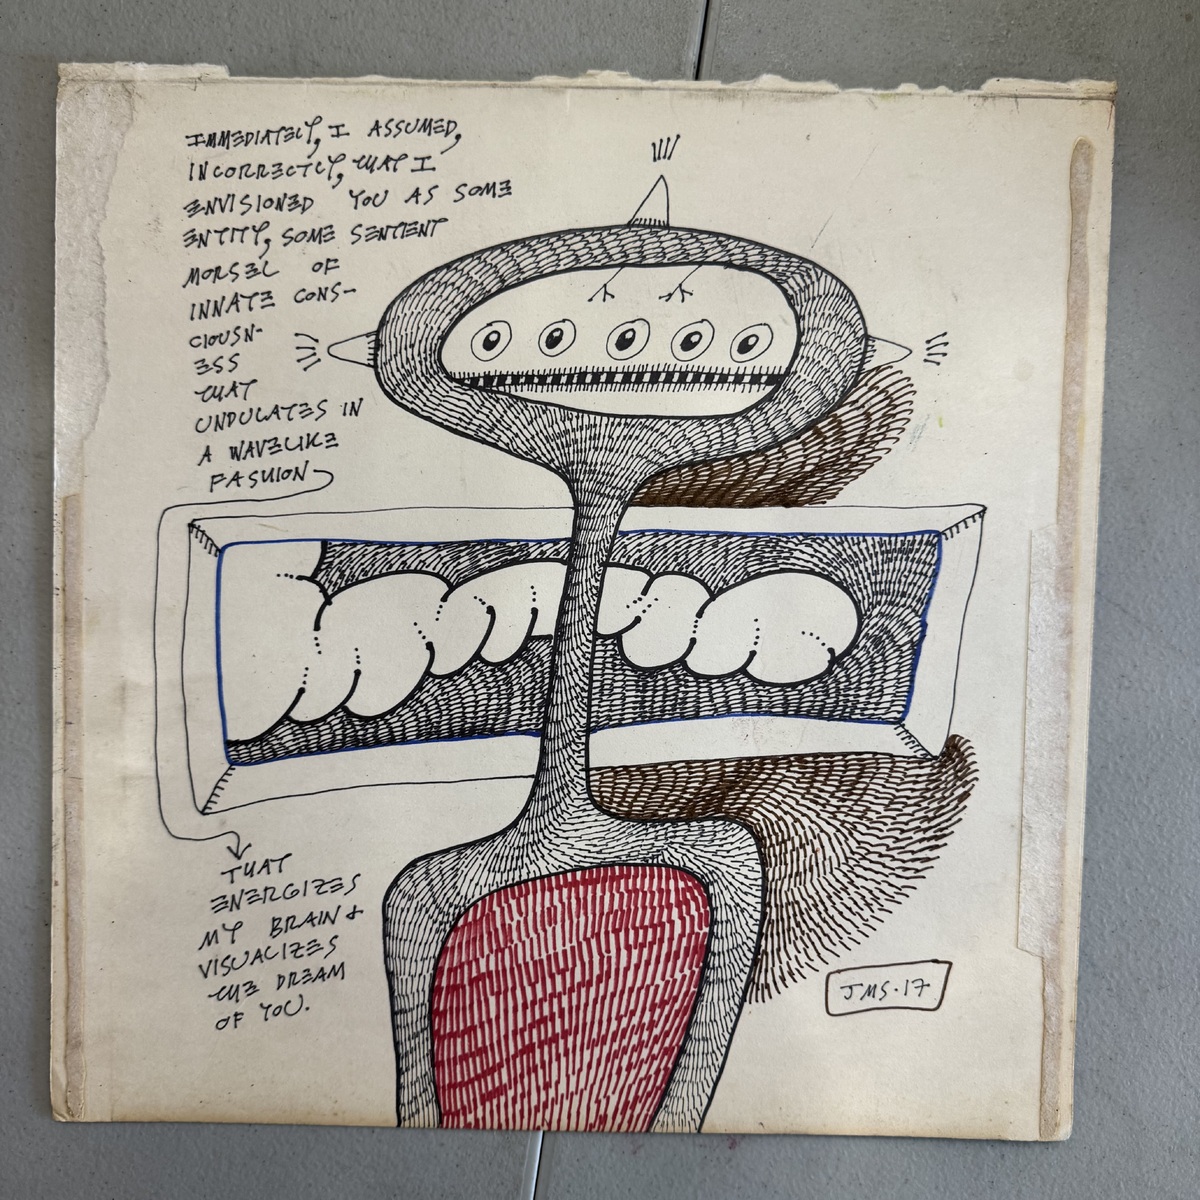 IMMEDIATELY, I ASSUMED,
INCORRECTLY, THAT I
ENVISIONED YOU AS SOME
ENTITY, SOME SENTIENT
MORSEL OF
INNATE CONS-
CIOUSN-
ESS
THAT
UNDULATES IN
A WAVELIKE
FASHION
THAT
ENERGIZES
MY BRAIN &
VISUALIZES
THE DREAM
OF YOU.
JMS·17